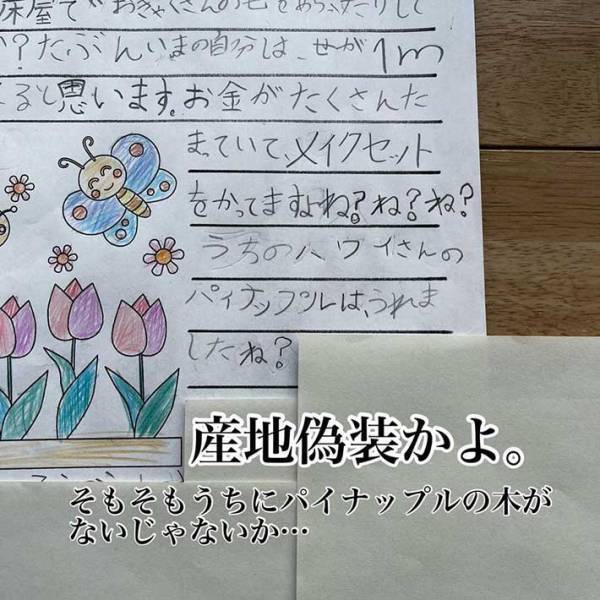 床屋で おきゃくさんの毛を
か?たぶんいまの自分は、せが1m
ると思います。お金がたくさんた
まっていて、メイクセット
をかってますよね?ね?ね?
うちのハワイさんの
パイナップルは、うれま
したね?
産地偽装かよ。
そもそもうちにパイナップルの木が
ないじゃないか…